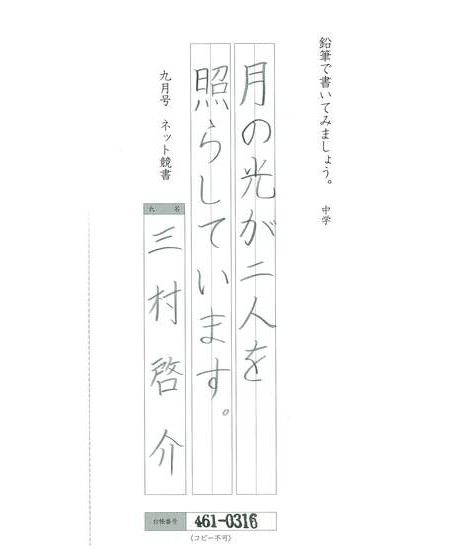 鉛筆で書いてみましょう。 中学
月の光が二人を
照らしています。
九月号 ネット競書
氏名
三村啓介
台帳番号 461-0316
(コピー不可)